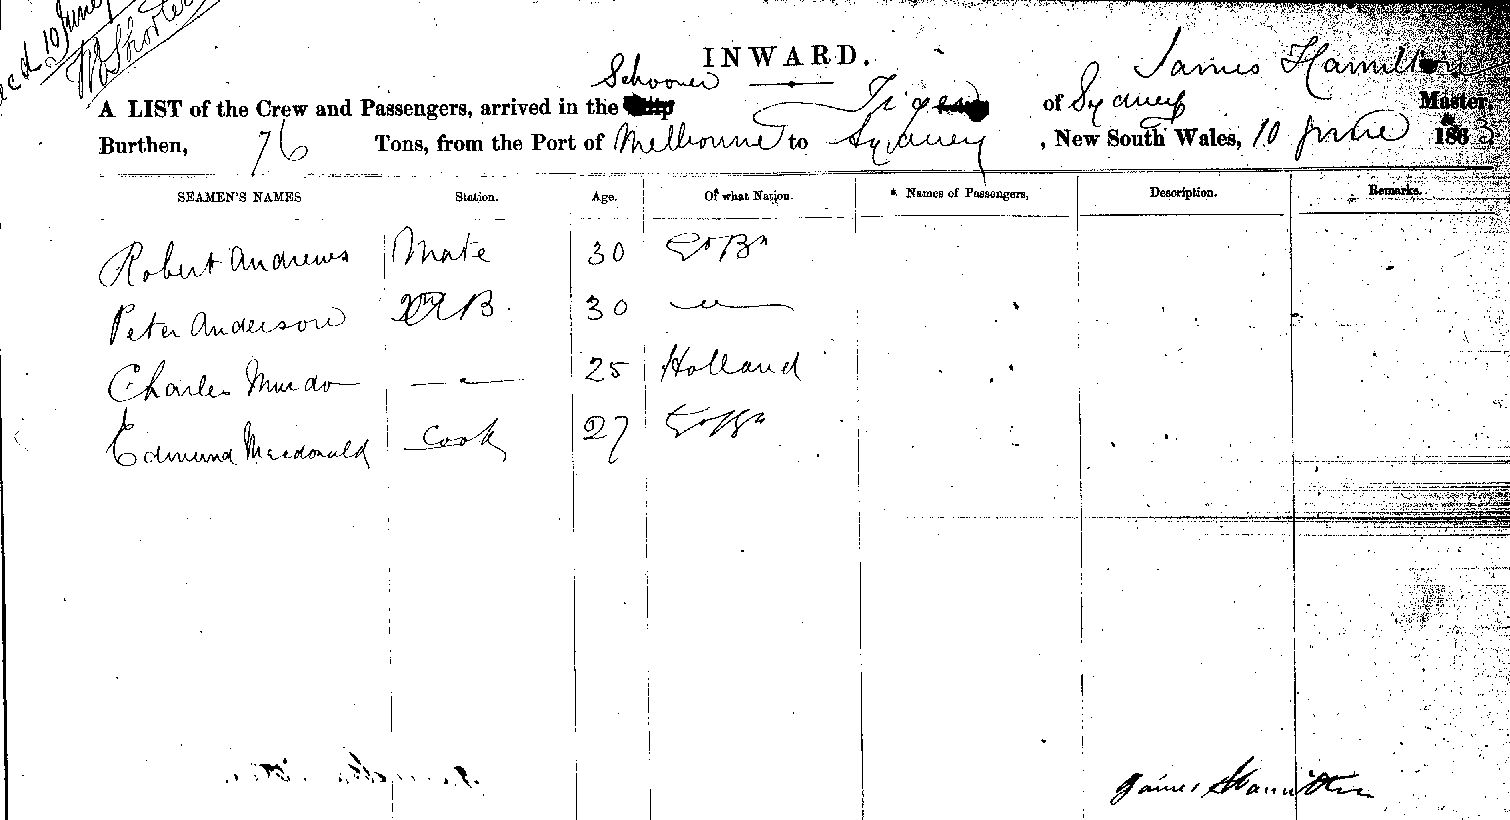 10 June
Shorter
INWARD.
James Hamilton
Schooner
A LIST of the Crew and Passengers, arrived in the Tiger of Sydney Master,
Burthen, 76 Tons, from the Port of Melbourne to Sydney, New South Wales, 10 June 186
SEAMEN'S NAMES Station. Age. Of what Nation. * Names of Passengers, Description. Remarks.
Robert Andrews Mate 30 Gt Bn
Peter Anderson AB. 30 — " —
Charles Mundo — " — 25 Holland
Edmund Macdonald Cook 27 Gt Bn
James Hamilton